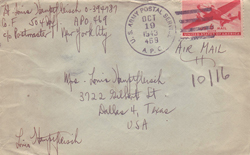 Lt Louis Hauptfleisch
A.P.O. 469
c/o Postmaster New York City
U.S. ARMY POSTAL SERVICE
OCT
19
1943
469
A.P.O.
AIR MAIL
10/16
Mrs. Louis Hauptfleisch
3722 Gilbert St
Dallas 4, Texas
USA
Louis Hauptfleisch